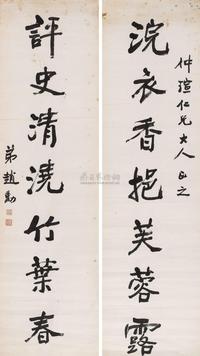 仲瑄仁兄大人正之
浣衣香挹芙蓉露
評史清澆竹葉春
弟趙